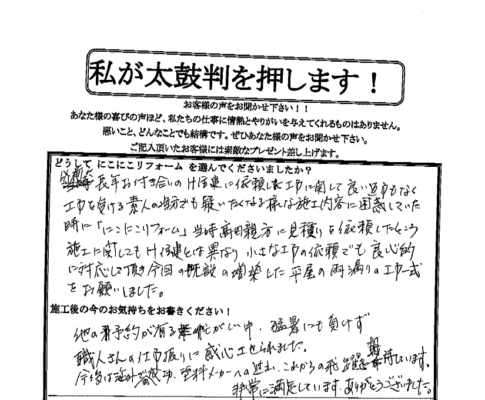 私が太鼓判を押します！
お客様の声をお聞かせ下さい！！
あなた様の喜びの声ほど、私たちの仕事に情熱とやりがいを与えてくれるものはありません。
悪いこと、どんなことでも結構です。ぜひあなた様の声をお聞かせ下さい。
ご記入頂いたお客様には素敵なプレゼント差し上げます。
どうして にこにこリフォーム を選んでくださいましたか？
長年お付き合いのH住建に依頼した工事に関して良い返事もなく
工事を受ける素人の当方でも疑いたくなる様な施工内容に困惑していた
時に「にこにこリフォーム」当時高田親方に見積りを依頼したところ
施工に関してもH住建とは異なり小さな工事の依頼でも良心的
に対応して頂き今回の既設の増築した平屋の雨漏りの工事一式
をお願いしました。
施工後の今のお気持ちをお書きください！
他の予約が有る忙がしい中、猛暑にも負けず
職人さんの仕事振りに感心させられました。
今後は海外 塗料メーカーへの進出、これからの飛躍 期待しています。
非常に満足しています。ありがとうございました。